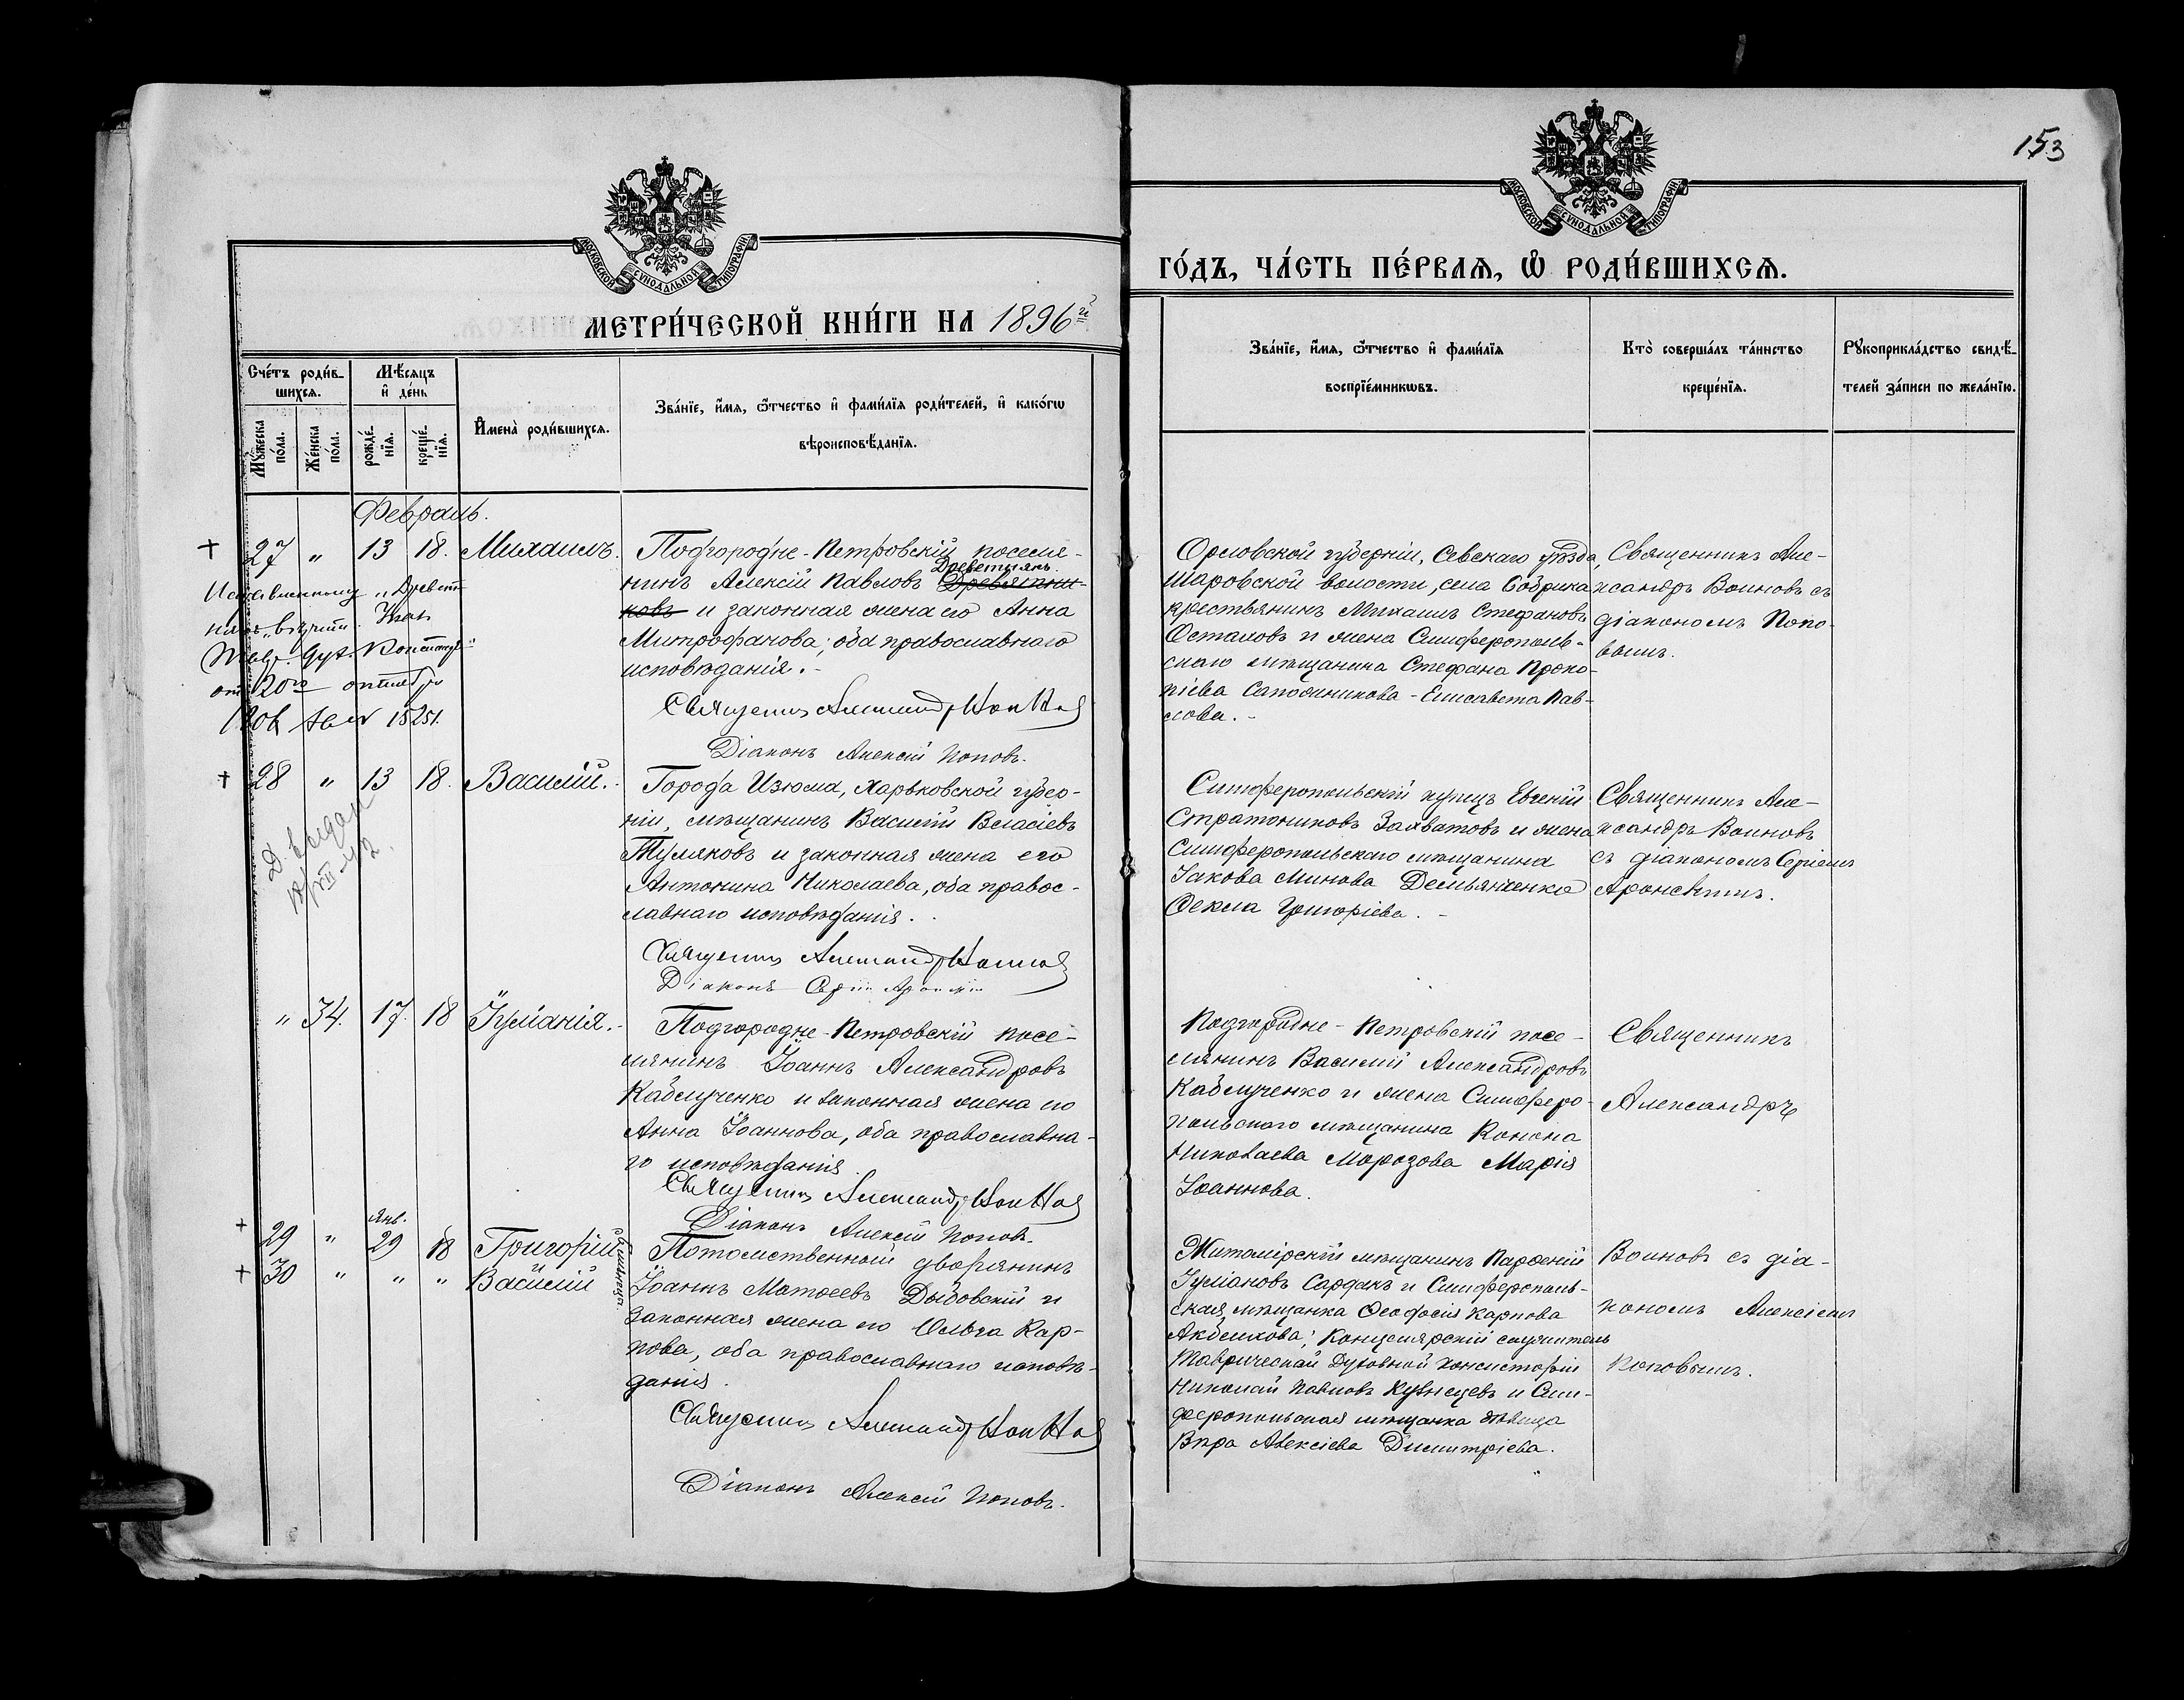 153
МЕТРИ́ЧЕСКОЙ КНИ́ГИ НА 1896й
ГО́ДЪ, ЧА́СТЬ ПЕ́РВАѦ, Ѿ РОДИ́ВШИХСѦ.
МОСКОВСКОЙ СѴНОДАЛЬНОЙ ТИПОГРАФІИ
МОСКОВСКОЙ СѴНОДАЛЬНОЙ ТИПОГРАФІИ
Сче́тъ роди́в-
шихсѧ.
Мꙋ́жеска по́ла.
Же́нска по́ла.
Мѣ́сѧцъ
и҆ де́нь
рожде́-нїѧ.
креще́-нїѧ.
И҆мена̀ роди́вшихсѧ.
Зва́нїе, и҆́мѧ, ѻ҆́тчество и҆ фами́лїѧ роди́телей, и҆ како́гѡ
вѣроисповѣ́данїѧ.
Зва́нїе, и҆́мѧ, ѻ҆́тчество и҆ фами́лїѧ
воспрїе́мникѡвъ.
Кто̀ соверша́лъ та́инство
креще́нїѧ.
Рꙋкоприкла́дство свидѣ́-
телей за́писи по жела́нїю.
Февраль.
27 " 13 18. Михаилъ.
Подгородне-Петровскій поселя-
нинъ Алексій Павловъ Древетнякъ
Древятни-
ковъ и законная жена его Анна
Митрофанова; оба православнаго
исповѣданія.-
Священникъ Александръ Воиновъ
Діаконъ Алексій Поповъ.
от 20го октября
15251.
Орловской губерніи, Севскаго уѣзда,
Шаровской волости, села Бобрика
крестьянинъ Михаилъ Стефановъ
Осталовъ и жена Симферополь-
скаго мѣщанина Стефана Проко-
піева Сапожникова - Елисавета Пав-
лова.-
Священникъ Але-
ксандръ Воиновъ съ
діакономъ Попо-
вымъ.
28 " 13 18. Василій.-
Города Изюма, Харьковской губер-
ніи, мѣщанинъ Василій Власіевъ
Туляковъ и законная жена его
Антонина Николаева, оба правос-
лавнаго исповѣданія.
Священникъ Александръ Воиновъ
Діаконъ Сергій
Симферопольскій купецъ Евгеній
Стратониковъ Захватовъ и жена
Симферопольскаго мѣщанина
Іакова Минова Демьянченко
Ѳекла Григоріева.-
Священникъ Але-
ксандръ Воиновъ
съ діакономъ Сергіемъ
" 34. 17. 18 Іуліанія.-
Подгородне-Петровскій посе-
лянинъ Іоаннъ Александровъ
Каблученко и законная жена его
Анна Іоаннова, оба православна-
го исповѣданія.
Священникъ Александръ Воиновъ
Діаконъ Алексій Поповъ.
Подгородне-Петровскій посе-
лянинъ Василій Александровъ
Каблученко и жена Симферо-
польскаго мѣщанина Конона
Николаева Морозова Марія
Іоаннова.
Священникъ
Александръ
Янв.
29 " 29 18 Григорій
30 " " " Василій
близнецы.
Потомственный дворянинъ
Іоаннъ Матѳеевъ Дыбовскій и
законная жена его Ольга Кар-
пова, оба православнаго исповѣ-
данія.
Священникъ Александръ Воиновъ
Діаконъ Алексій Поповъ.
Житомірскій мѣщанинъ Парѳеній
Іуліановъ Сардакъ и Симферополь-
ская мѣщанка Ѳеодосія Карпова
Акбешкова; Канцелярскій служитель
Таврической Духовной Консисторіи
Николай Павловъ Кузнецевъ и Сим-
феропольская мѣщанка дѣвица
Вѣра Алексіева Димитріева.
Воиновъ съ діа-
кономъ Алексіемъ
Поповымъ.